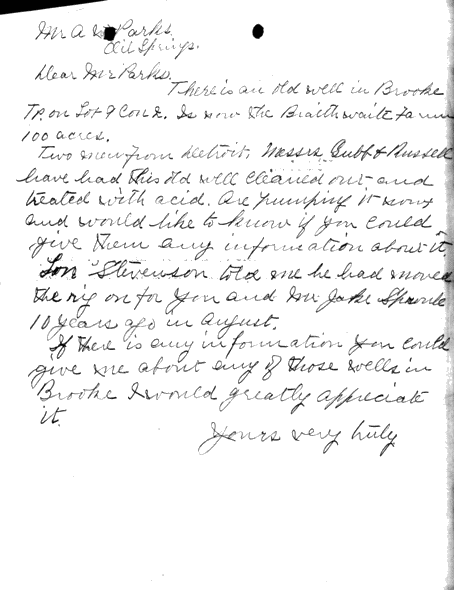 Mr A Parks.
Oil Springs.
Dear Mr Parks.
There is an old well in Brooke
TP. on Lot 9 Con 2. Is now the Braithwaite Farm
100 acres.
Two men from Detroit. Messrs & Russell
have had this old well cleaned out and
treated with acid. Are pumping it now
and would like to know if you could
give them any information about it.
Stevenson told me he had moved
the rig on for you and Mr Jake
10 years ago in August.
If there is any information you could
give me about any of those wells in
Brooke I would greatly appreciate
it.
Yours very truly